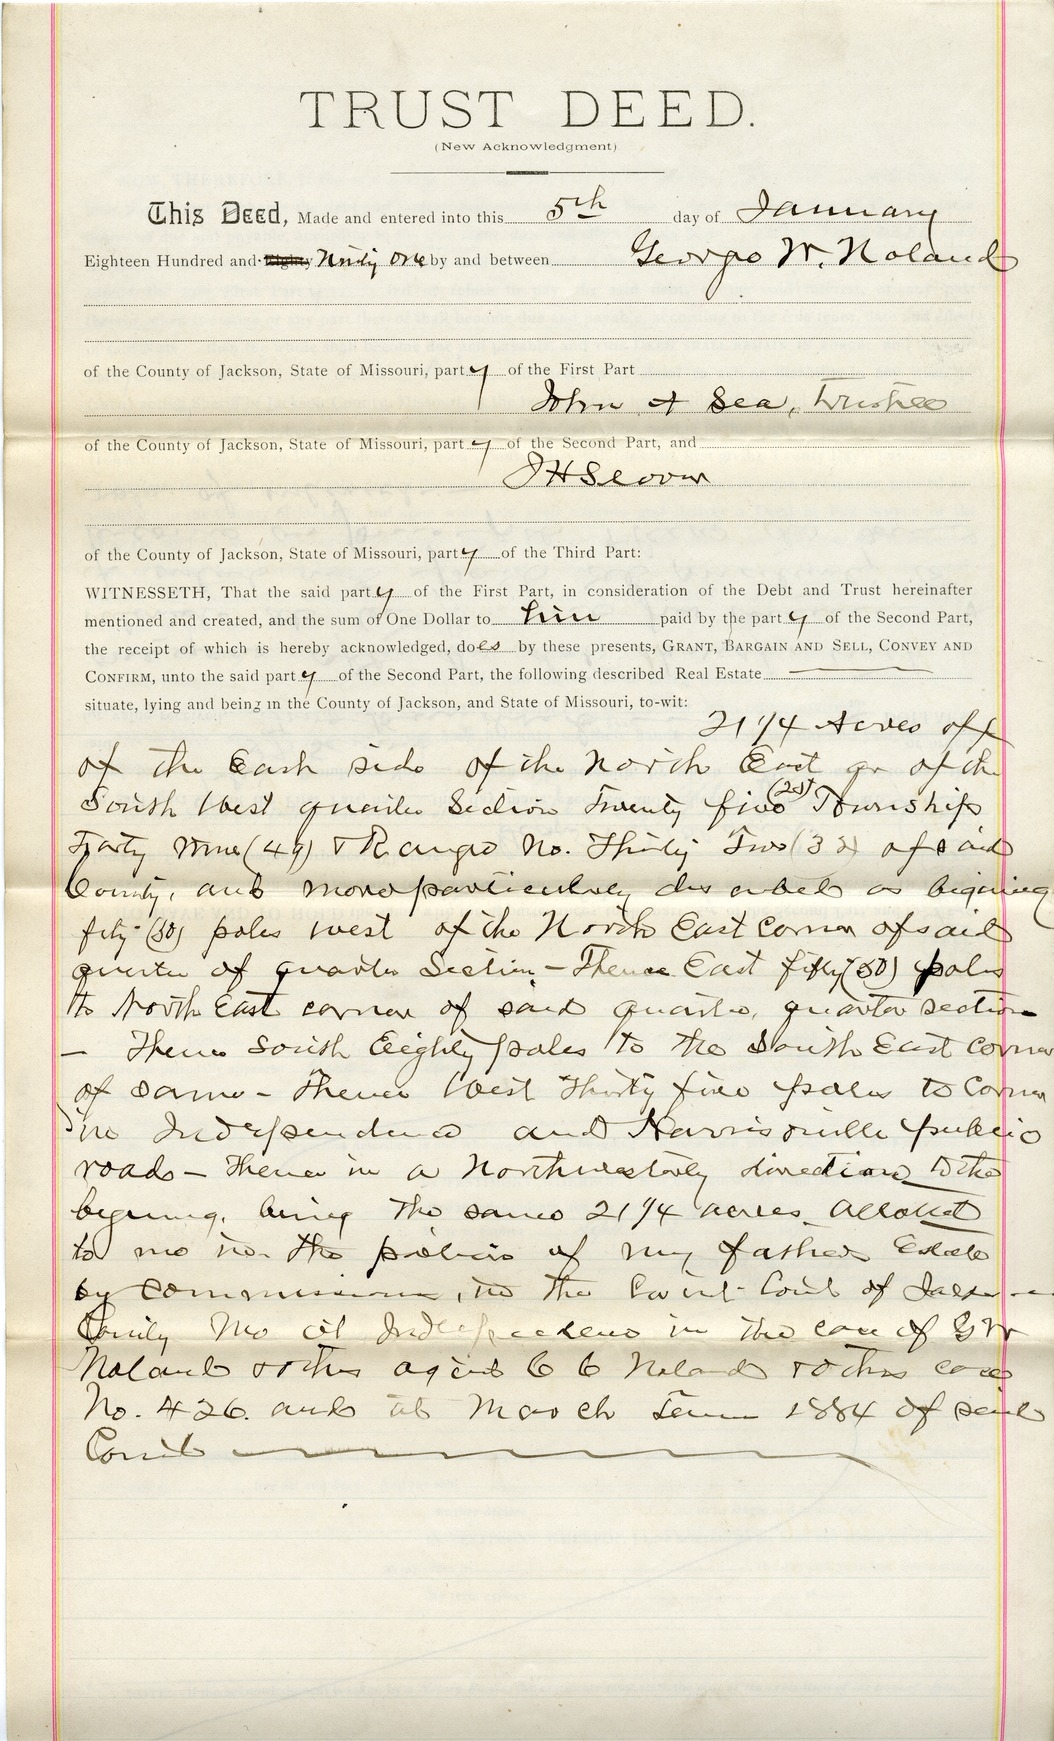 TRUST DEED.
(New Acknowledgment)
This Deed, Made and entered into this 5th day of January
Eighteen Hundred and Eighty Ninty One by and between George W. Noland
of the County of Jackson, State of Missouri, part y of the First Part
John A Sea, Trustee
of the County of Jackson, State of Missouri, part y of the Second Part, and
J H Slover
of the County of Jackson, State of Missouri, part y of the Third Part:
WITNESSETH, That the said part y of the First Part, in consideration of the Debt and Trust hereinafter
mentioned and created, and the sum of One Dollar to him paid by the part y of the Second Part,
the receipt of which is hereby acknowledged, does by these presents, GRANT, BARGAIN AND SELL, CONVEY AND
CONFIRM, unto the said part y of the Second Part, the following described Real Estate
situate, lying and being in the County of Jackson, and State of Missouri, to-wit:
21 1/4 Acres off
of the East side of the North East qr of the
South West quarter Section Twenty five (25) Township
Forty Nine (49) & Range No. Thirty Two (32) of said
County, and more particularly described as begining
fifty (50) poles west of the North East Corner of said
quarter of quarter Section - Thence East fifty (50) poles
to North East corner of said quarter, quarter section
- Thence South Eighty poles to the South East corner
of same - Thence West Thirty five poles to Corner
in Independence and Harrisonville public
roads - Thence in a Northwesterly direction to the
begining, being the same 21 1/4 acres allotted
to me in the of my father Estate
by commissioners, in the Circuit Court of Jackson
County Mo at Independence in the case of G W
Noland & others against Noland & others case
No. 426. and at March Term 1884 of said
Court